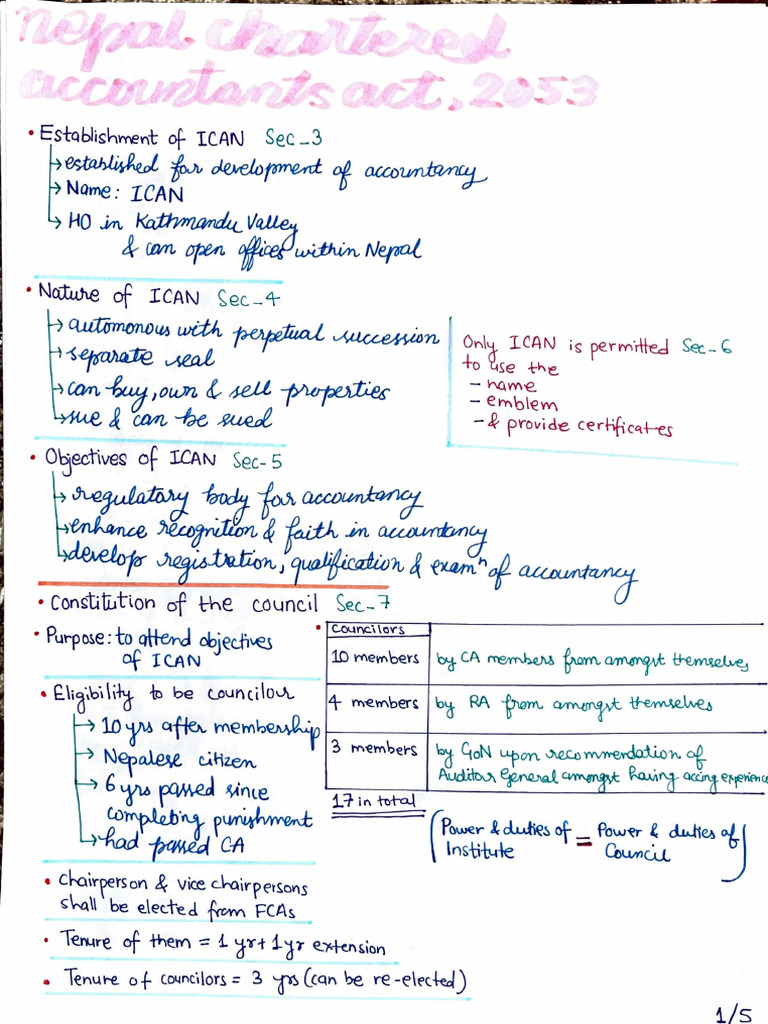 nepal chartered
accountants act, 2053
• Establishment of ICAN Sec-3
→ established for development of accountancy
→ Name: ICAN
→ HO in Kathmandu Valley
& can open offices within Nepal
• Nature of ICAN Sec-4
→ automonous with perpetual succession
→ separate seal
→ can buy, own & sell properties
→ sue & can be sued
Only ICAN is permitted Sec-6
to use the
- name
- emblem
- & provide certificates
• Objectives of ICAN Sec-5
→ regulatory body for accountancy
→ enhance recognition & faith in accountancy
→ develop registration, qualification & examⁿ of accountancy
• Constitution of the council Sec-7
• Purpose: to attend objectives
of ICAN
• Eligibility to be councilour
→ 10 yrs after membership
→ Nepalese citizen
→ 6 yrs passed since
completing punishment
→ had passed CA
• Councilors
10 members by CA members from amongst themselves
4 members by RA from amongst themselves
3 members by GoN upon recommendation of
Auditor General amongst having accing experience
17 in total
(Power & duties of = Power & duties of
Institute Council)
• Chairperson & vice chairpersons
shall be elected from FCAs
• Tenure of them = 1 yr + 1 yr extension
• Tenure of councilors = 3 yrs (can be re-elected)
1/5